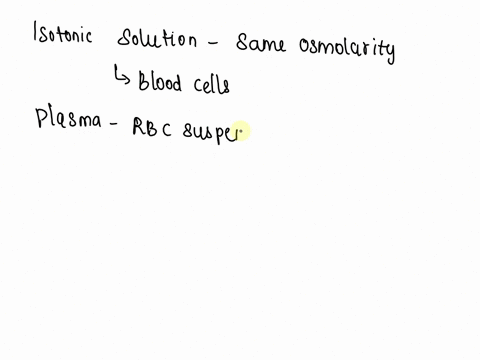 Isotonic Solution - Same osmolarity
↳ Blood cells
Plasma - RBC suspe